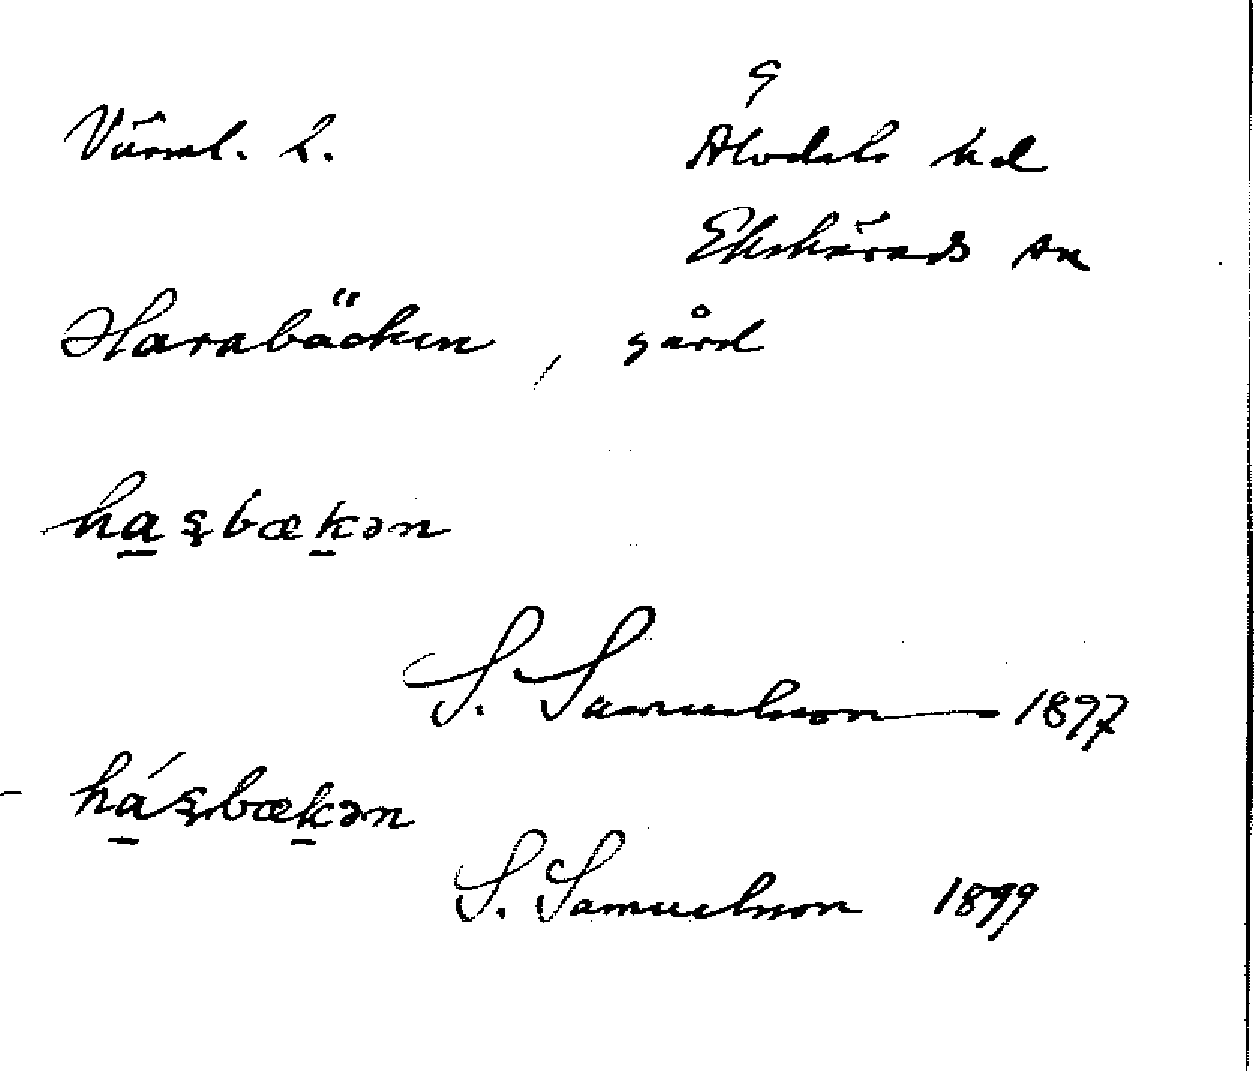 9
Värml. l.
Älvdals hd
Ekshärads sn
Harabäcken, gård
ha̱ʂbæḵən
S. Samuelson 1897
há̱ʂbæḵən
S. Samuelson 1899